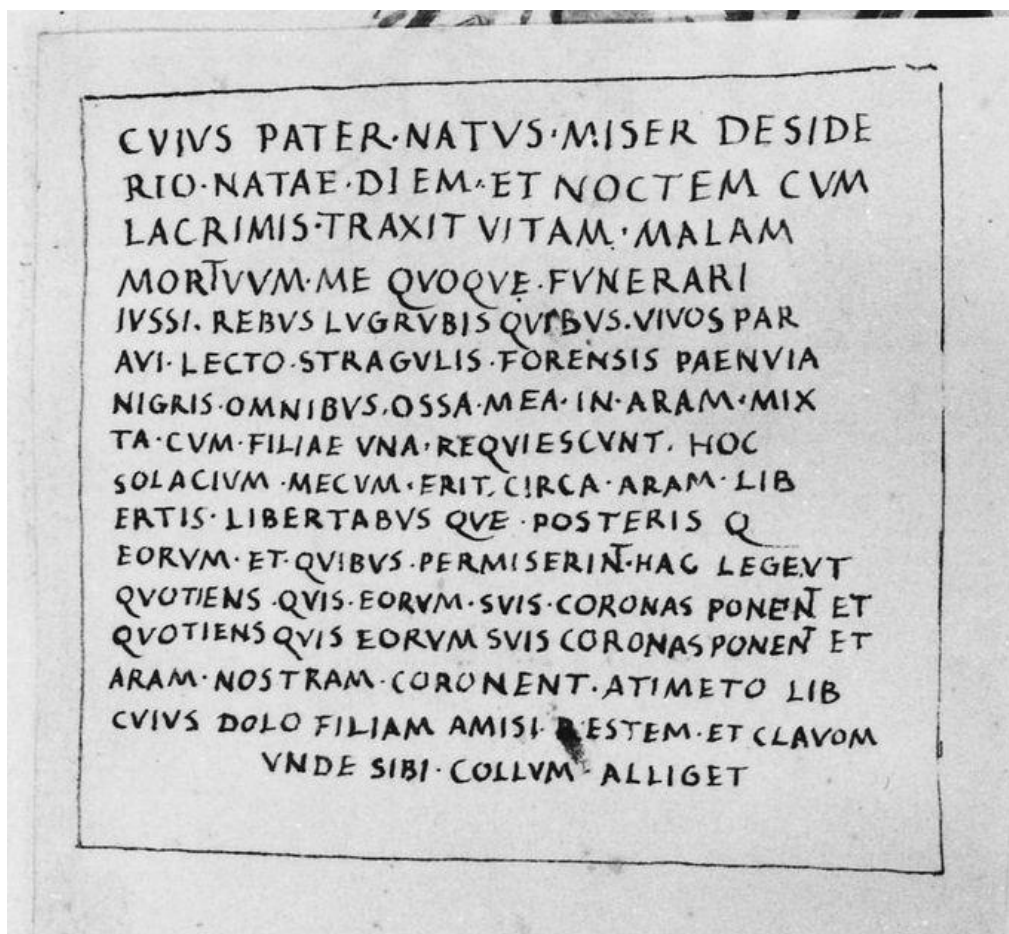 CVIVS PATER·NATVS·MISER DESIDE
RIO·NATAE·DIEM·ET NOCTEM CVM
LACRIMIS·TRAXIT VITAM·MALAM
MORTVVM·ME QVOQVE·FVNERARI
IVSSI. REBVS LVGRVBIS QVIBVS.VIVOS PAR
AVI·LECTO·STRAGVLIS·FORENSIS PAENVIA
NIGRIS·OMNIBVS.OSSA·MEA·IN·ARAM·MIX
TA·CVM·FILIAE VNA·REQVIESCVNT. HOC
SOLACIVM·MECVM·ERIT.CIRCA·ARAM·LIB
ERTIS·LIBERTABVS QVE·POSTERIS Q
EORVM·ET·QVIBVS·PERMISERINT·HAC LEGE.VT
QVOTIENS·QVIS·EORVM·SVIS·CORONAS PONENT ET
QVOTIENS QVIS EORVM SVIS CORONAS PONENT ET
ARAM·NOSTRAM·CORONENT·ATIMETO LIB
CVIVS DOLO FILIAM AMISI· RESTEM·ET CLAVOM
VNDE SIBI·COLLVM·ALLIGET